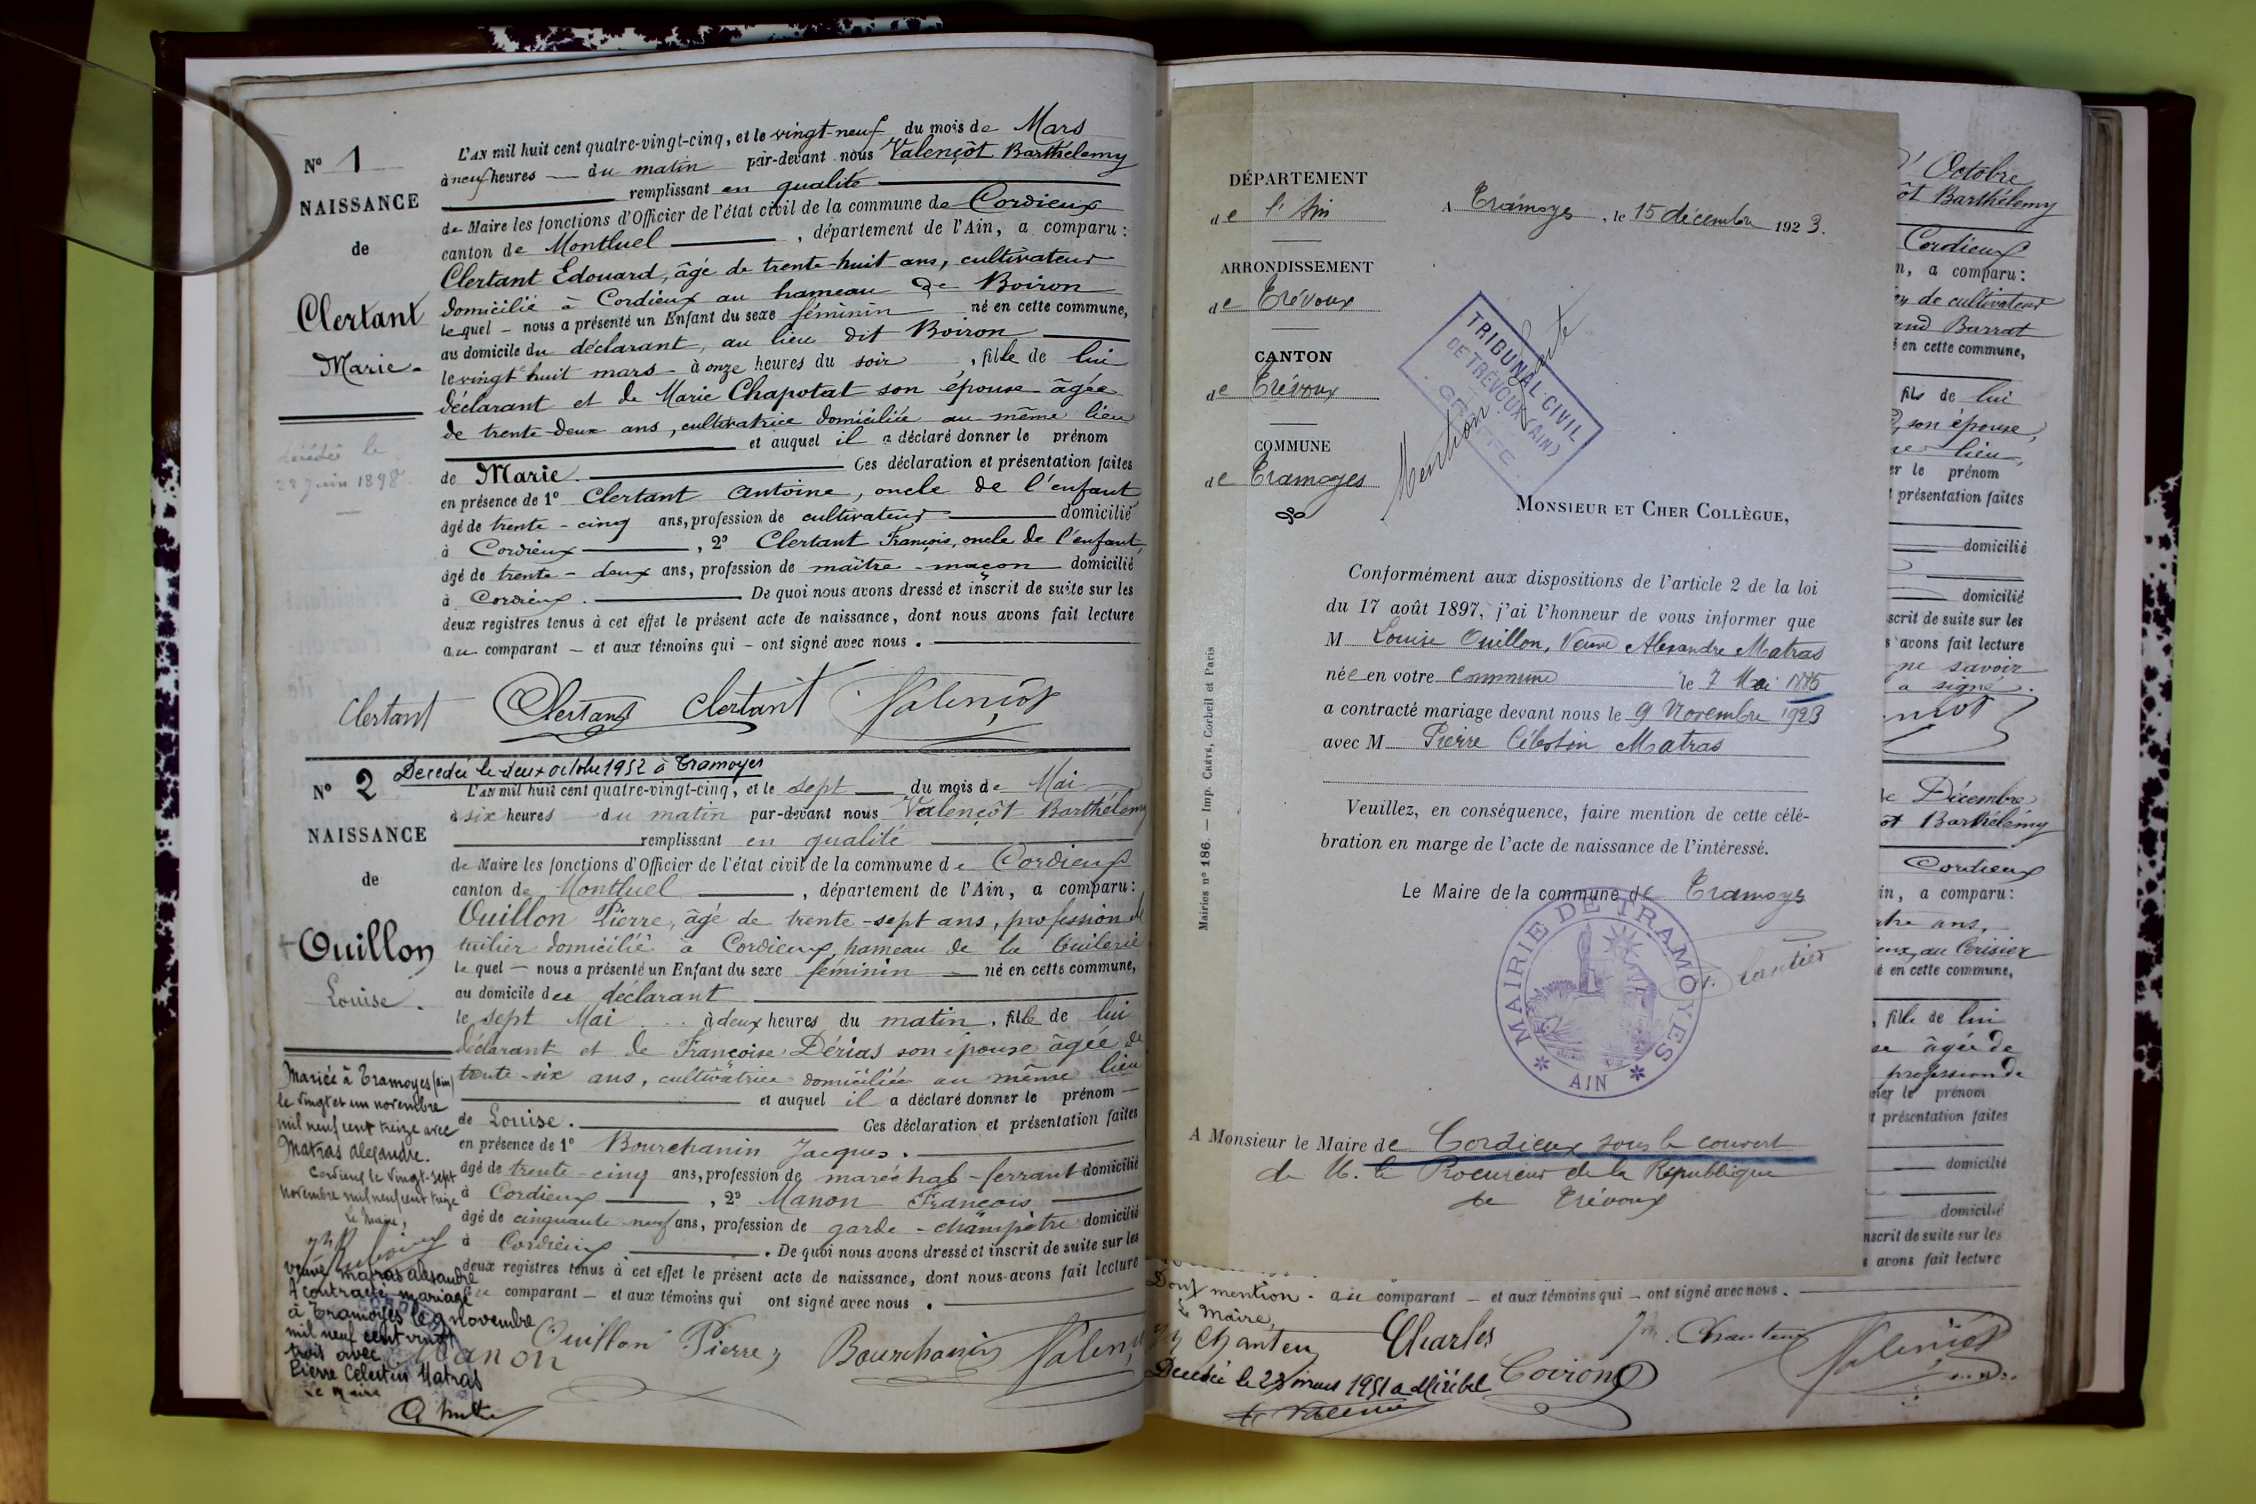 N° 1
NAISSANCE
de
Clertant
Marie.
décédée le
28 juin 1898
L'AN mil huit cent quatre-vingt-cinq, et le vingt-neuf du mois de Mars
à neuf heures — du matin par-devant nous Valençôt Barthélemy
remplissant en qualité
de Maire les fonctions d'Officier de l'état civil de la commune de Cordieux
canton de Montluel , département de l'Ain, a comparu :
Clertant Edouard, âgé de trente-huit ans, cultivateur
domicilié à Cordieux au hameau de Boiron
lequel — nous a présenté un Enfant du sexe féminin né en cette commune,
au domicile du déclarant, au lieu dit Boiron
le vingt huit mars - à onze heures du soir , fille de lui
déclarant et de Marie Chapotat son épouse âgée
de trente-deux ans, cultivatrice domiciliée au même lieu
et auquel il a déclaré donner le prénom
de Marie. Ces déclaration et présentation faites
en présence de 1° Clertant Antoine, oncle de l'enfant
âgé de trente-cinq ans, profession de cultivateur domicilié
à Cordieux , 2° Clertant François, oncle de l'enfant,
âgé de trente-deux ans, profession de maître-maçon domicilié
à Cordieux. De quoi nous avons dressé et inscrit de suite sur les
deux registres tenus à cet effet le présent acte de naissance, dont nous avons fait lecture
au comparant — et aux témoins qui — ont signé avec nous .
Clertant Clertant Clertant Valençôt
Decedée le deux octobre 1952 à Tramoyes
N° 2
NAISSANCE
de
Ouillon
Louise.
Mariée à Tramoyes (ain)
le vingt et un novembre
mil neuf cent treize avec
Matras alexandre.
Cordieux le vingt-sept
novembre mil neuf cent treize
Le Maire,
veuve matras alexandre
A contracté mariage
à Tramoyes le 9 novembre
mil neuf cent vingt
trois avec
Pierre Celestin Matras
Le Maire
L'AN mil huit cent quatre-vingt-cinq, et le sept du mois de Mai
à six heures du matin par-devant nous Valençôt Barthélemy
remplissant en qualité
de Maire les fonctions d'Officier de l'état civil de la commune de Cordieux
canton de Montluel , département de l'Ain, a comparu :
Ouillon Pierre, âgé de trente-sept ans, profession de
tuilier domicilié à Cordieux, hameau de la Tuilerie
lequel — nous a présenté un Enfant du sexe féminin né en cette commune,
au domicile du déclarant
le sept Mai à deux heures du matin, fille de lui
déclarant et de Françoise Dérias son épouse âgée de
trente-six ans, cultivatrice domiciliée au même lieu
et auquel il a déclaré donner le prénom
de Louise. Ces déclaration et présentation faites
en présence de 1° Bourchanin Jacques.
âgé de trente-cinq ans, profession de maréchal-ferrant domicilié
à Cordieux , 2° Manon François
âgé de cinquante-neuf ans, profession de garde-champêtre domicilié
à Cordieux . De quoi nous avons dressé et inscrit de suite sur les
deux registres tenus à cet effet le présent acte de naissance, dont nous avons fait lecture
au comparant — et aux témoins qui ont signé avec nous .
Ouillon Pierre Bourchanin Valençôt
Manon
DÉPARTEMENT
de l'Ain
ARRONDISSEMENT
de Trévoux
CANTON
de Trévoux
COMMUNE
de Tramoyes
A Tramoyes, le 15 décembre 1923.
TRIBUNAL CIVIL
DE TRÉVOUX (AIN)
GREFFE
Mention faite
MONSIEUR ET CHER COLLÈGUE,
Conformément aux dispositions de l'article 2 de la loi
du 17 août 1897, j'ai l'honneur de vous informer que
M Louise Ouillon, Veuve Alexandre Matras
née en votre Commune le 7 Mai 1885
a contracté mariage devant nous le 9 Novembre 1923
avec M Pierre Célestin Matras
Veuillez, en conséquence, faire mention de cette célé-
bration en marge de l'acte de naissance de l'intéressé.
Le Maire de la commune de Tramoyes
MAIRIE DE TRAMOYES
* AIN *
Mairies n° 186. — Imp. CRÉTÉ, Corbeil et Paris
A Monsieur le Maire de Cordieux sous le couvert
de M. le Procureur de la République
de Trévoux
d'Octobre
ôt Barthélemy
Cordieux
n, a comparu :
de cultivateur
and Barrat
en cette commune,
fils de lui
son épouse,
lieu,
er le prénom
présentation faites
domicilié
domicilié
scrit de suite sur les
avons fait lecture
ne savoir
a signé.
de Décembre
ôt Barthélemy
Cordieux
in, a comparu :
ans,
au Cerisier
en cette commune,
, fille de lui
âgée de
profession de
er le prénom
présentation faites
domicilié
domicilié
nscrit de suite sur les
avons fait lecture
Dont mention. au comparant — et aux témoins qui — ont signé avec nous .
Le Maire,
Chanteur Charles Chanteur Valençôt
Decedée le 23 mars 1951 a Miribel